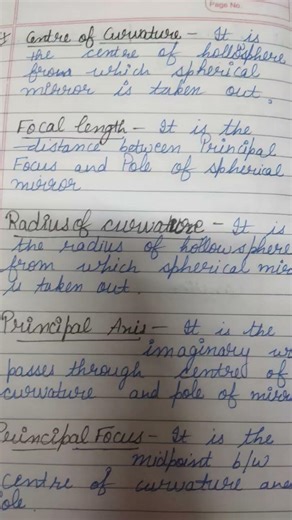 Page No.
Centre of Curvature - It is
the centre of hollsphere
from which spherical
mirror is taken out.
Focal length - It is the
distance between Principal
Focus and Pole of spherical
mirror
Radius of curvature - It is
the radius of hollow sphere
from which spherical
is taken out.
Principal Axis - It is the
imaginary
passes through centre of
curvature and pole of
Principal Focus - It is the
midpoint b/w
centre of curvature and
pole.